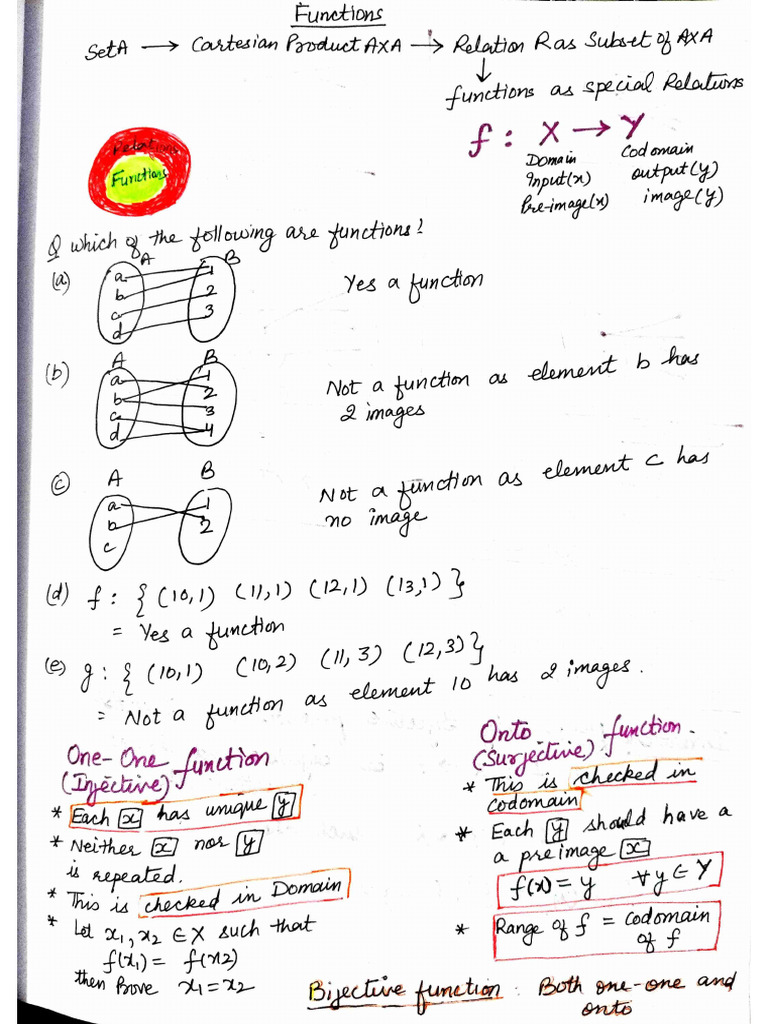 Functions
Set A → Cartesian Product A×A → Relation R as Subset of A×A
↓
functions as special Relations
f : X → Y
Domain Codomain
Input(x) output(y)
Pre-image(x) image(y)
Relations
Functions
Q which of the following are functions?
(a) A B
a 1
b 2
c 3
d
Yes a function
(b) A B
a 1
b 2
c 3
d 4
Not a function as element b has
2 images
(c) A B
a 1
b 2
c
Not a function as element c has
no image
(d) f : { (10,1) (11,1) (12,1) (13,1) }
= Yes a function
(e) g : { (10,1) (10,2) (11,3) (12,3) }
= Not a function as element 10 has 2 images.
One-One function
(Injective)
* Each x has unique y
* Neither x nor y
is repeated.
* This is checked in Domain
* Let x₁, x₂ ∈ X such that
f(x₁) = f(x2)
then Prove x₁ = x₂
Onto function.
(Surjective)
* This is checked in
codomain
* Each y should have a
a preimage x
f(x) = y ∀ y ∈ Y
* Range of f = codomain
of f
Bijective function : Both one-one and
onto